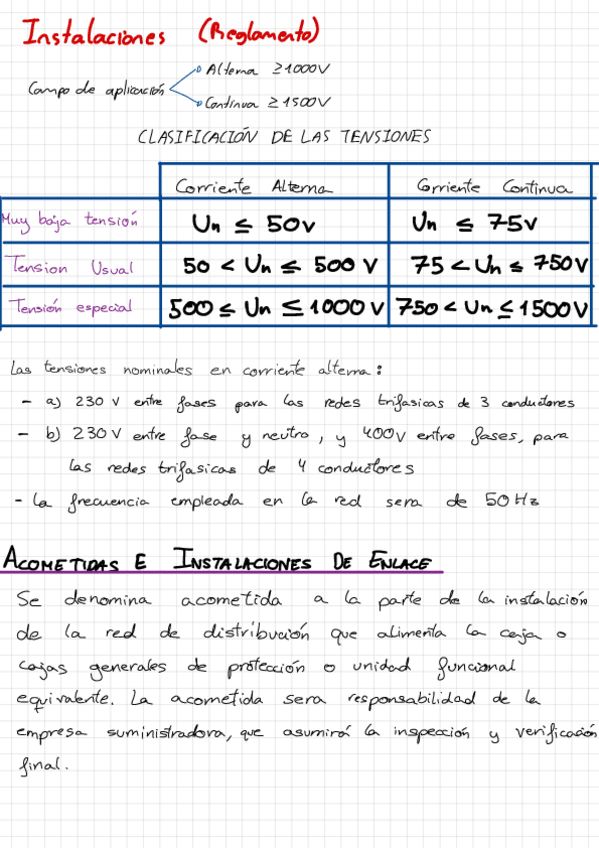 Instalaciones (Reglamento)
Campo de aplicación
Alterna ≥1000V
Continua ≥1500V
CLASIFICACIÓN DE LAS TENSIONES
Corriente Alterna Corriente Continua
Muy baja tensión Un ≤ 50V Un ≤ 75V
Tension Usual 50 < Un ≤ 500 V 75 < Un ≤ 750V
Tensión especial 500 ≤ Un ≤ 1000 V 750 < Un ≤ 1500V
Las tensiones nominales en corriente alterna:
- a) 230 V entre fases para las redes trifasicas de 3 conductores
- b) 230 V entre fase y neutro, y 400V entre fases, para
las redes trifasicas de 4 conductores
- La frecuencia empleada en la red sera de 50 Hz
ACOMETIDAS E INSTALACIONES DE ENLACE
Se denomina acometida a la parte de la instalación
de la red de distribución que alimenta la caja o
cajas generales de protección o unidad funcional
equivalente. La acometida sera responsabilidad de la
empresa suministradora, que asumirá la inspección y verificación
final.